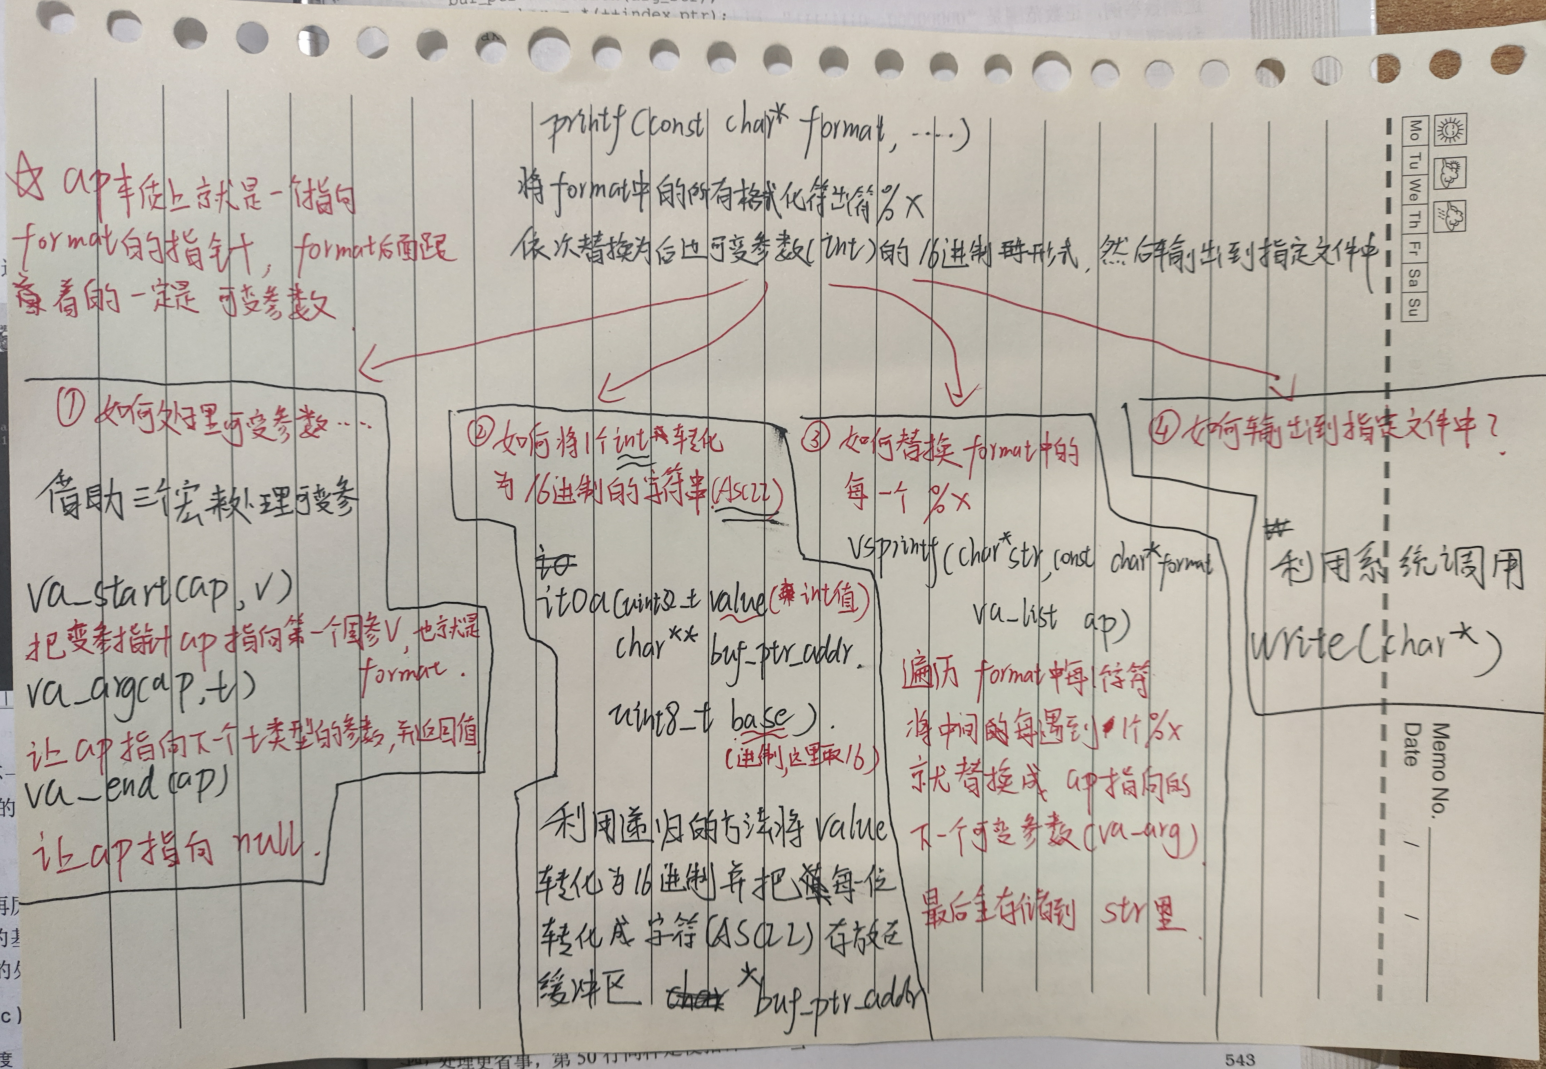 *(++index_ptr);
printf(const char* format, ……)
将format中的所有格式化符出符%x
依次替换为后边可变参数(int)的16进制形式,然后输出到指定文件中
☆ ap本质上就是一个指向
format的指针,format后面跟
着的一定是可变参数
Mo Tu We Th Fr Sa Su
① 如何处理可变参数……
借助三个宏来处理可变参
va_start(ap,v)
把变参指针ap指向第一个固参v,也就是
format.
va_arg(ap,t)
让ap指向下一个t类型的参数,并返回值
va_end(ap)
让ap指向null.
② 如何将1个int转化
为16进制的字符串(ASC22)
itoa(uint32_t value(int值)
char** buf_ptr_addr.
uint8_t base).
(进制,这里取16)
利用递归的方法将value
转化为16进制并把每一位
转化成字符(ASC22)存放在
缓冲区 *buf_ptr_addr
③ 如何替换format中的
每一个%x
vsprintf(char*str,const char*format
va_list ap)
遍历format中每1个字符
将中间的每遇到1个%x
就替换成ap指向的
下一个可变参数(va_arg)
最后全存储到str里
④ 如何输出到指定文件中?
利用系统调用
write(char*)
Memo No.
Date / /
543